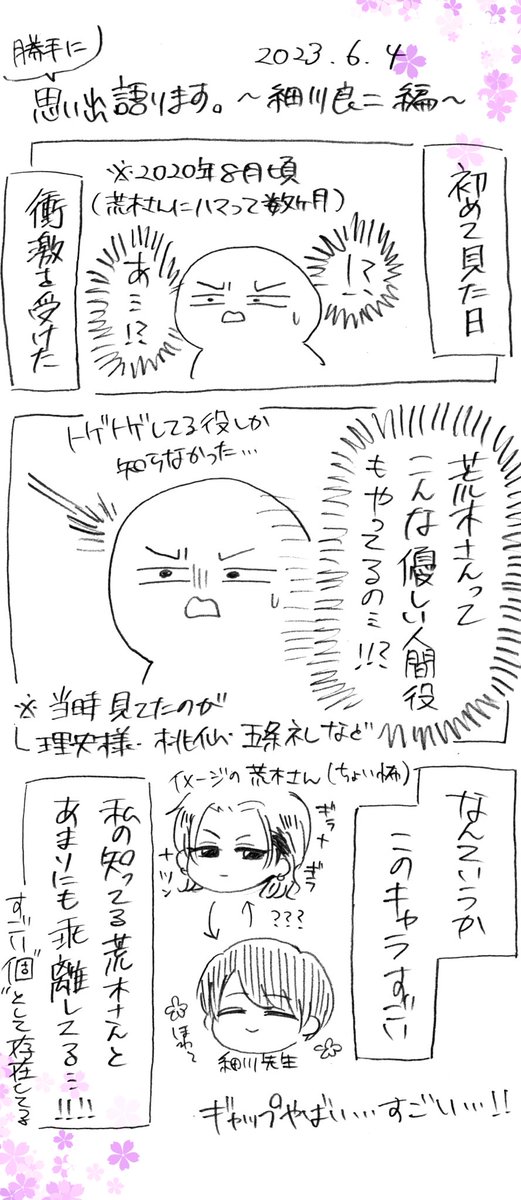 勝手に
2023.6.4
思い出語ります。～細川良二編～
初めて見た日
※2020年8月頃
(荒木さんにハマって数ヶ月)
!?
あ…!?
衝激を受けた
荒木さんって
こんな優しい人間役
もやってるの…!!?
トゲトゲしてる役しか
知らなかった…
※当時見てたのが
理央様・桃仙・五条礼など
なんていうか
このキャラすごい
イメージの荒木さん(ちょい怖)
ギラ
ギラ
ツン
???
ほわ～
細川先生
私の知ってる荒木さんと
あまりにも乖離してる…!!!!
すごい"個"として存在してる
ギャップやばい…すごい…!!